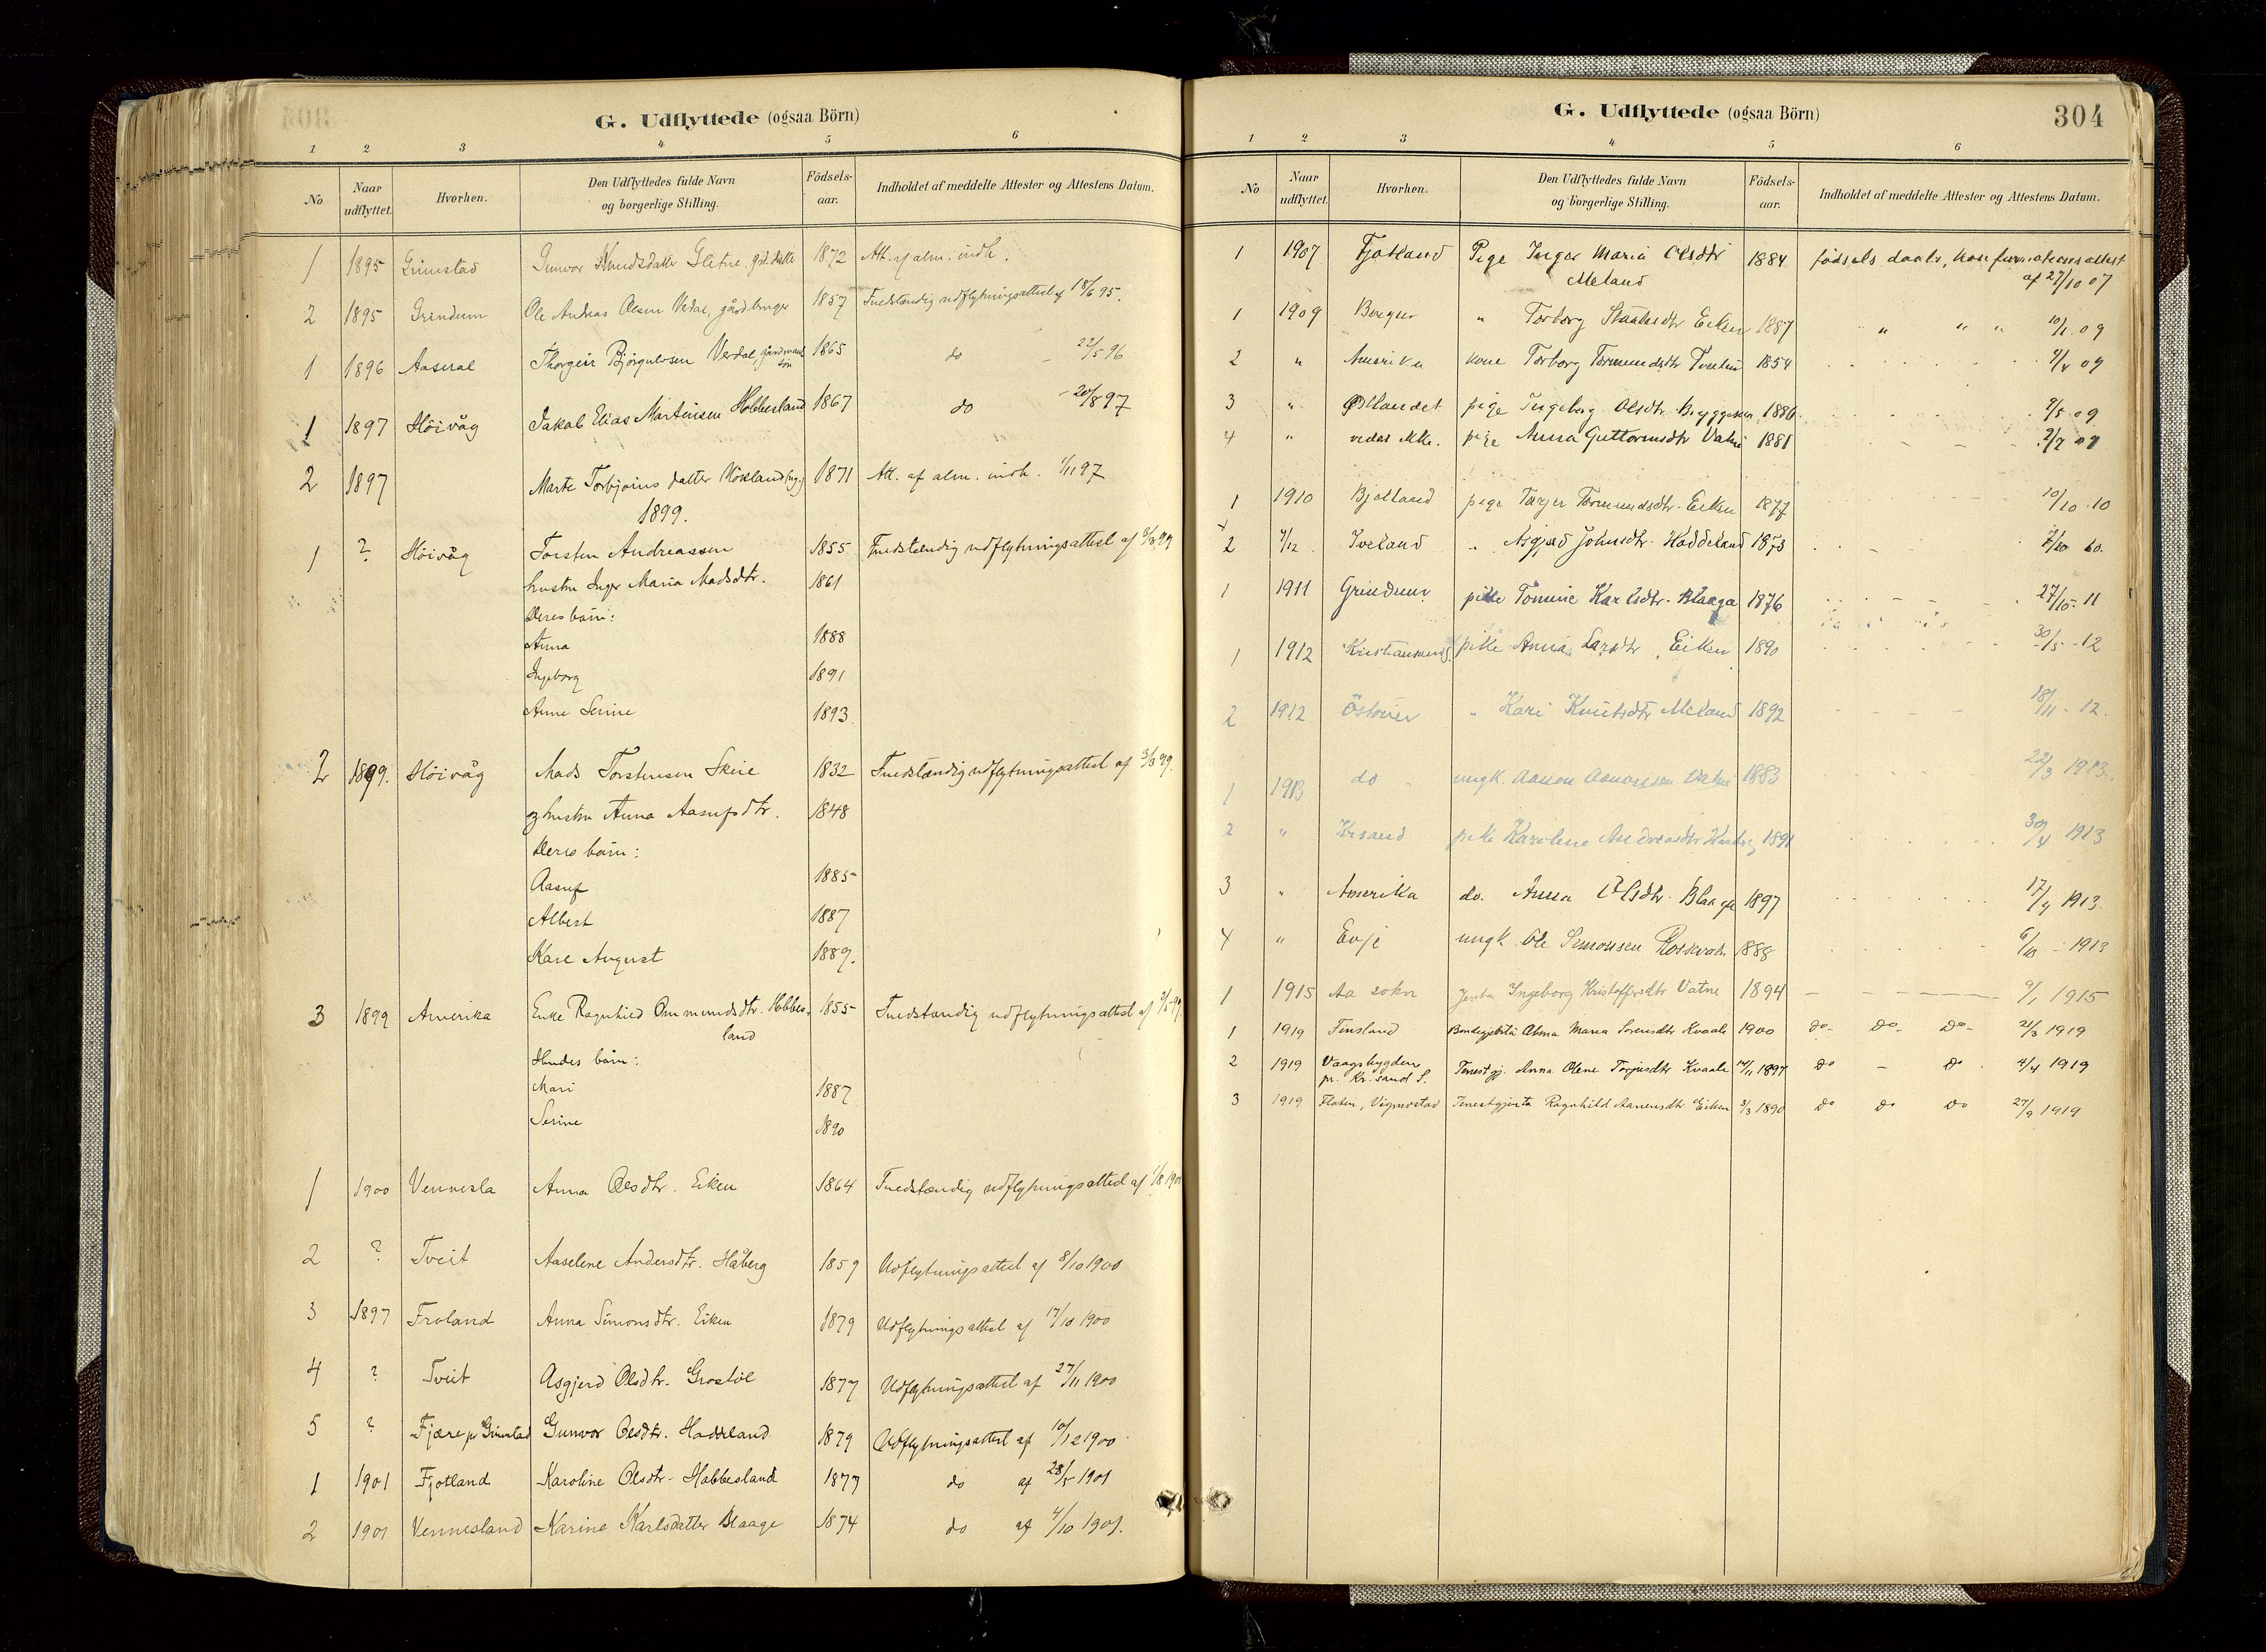 G. Udflyttede (ogsaa Börn)
1 2 3 4 5 6
No Naar udflyttet. Hvorhen. Den Udflyttedes fulde Navn og borgerlige Stilling. Födsels-aar. Indholdet af meddelte Attester og Attestens Datum.
1 1895 Grimstad Gunvor Knudsdatter 1872 Att. af alm. indh.
2 1895 Grindum Ole Andreas Olsen Verdal, gårdbruger 1857 Fuldstændig udflytningsattest af 18/6 95.
1 1896 Aaseral Thorgeir Bjørgulvsen Verdal, 1865 do - 22/5 96
1 1897 Høivåg Jakob Elias Martinsen Hobbesland 1867 do - 20/8 97
2 1897 Marte Torbjørns datter 1871 Att. af alm. indh. 1/11 97
1899.
1 ? Høivåg Torsten Andreassen 1855 Fuldstændig udflytningsattest af
hustru Inger Maria Madsdtr. 1861
Deres børn:
Anna 1888
Ingeborg 1891
Anne Serine 1893.
2 1899. Høivåg Mads Torstensen Skeie 1832 Fuldstændig udflytningsattest af 3/3 99.
og hustru Anna Aasufsdtr. 1848
Deres børn:
Aasuf 1885
Albert 1887
Karl August 1889.
3 1899 Amerika Enke Ragnhild Ommundsdtr. Hobbes-land 1855 Fuldstændig udflytningsattest af
Hendes børn:
Mari 1887
Serine 1890
1 1900 Vennesla Anna Olsdtr. Eiken 1864 Fuldstændig udflytningsattest af
2 ? Tveit Aaselene Andersdtr. Håberg 1859 Udflytningsattest af 8/10 1900
3 1897 Froland Anna Simonsdtr. Eiken 1879 Udflytningsattest af 17/10 1900
4 ? Tveit Asgjerd Olsdtr. Grostøl 1877 Udflytningsattest af 27/11 1900
5 ? Fjære pr Grimstad Gunvor Olsdtr. Haddeland 1879 Udflytningsattest af 10/12 1900
1 1901 Fjotland Karoline Olsdtr. Hobbesland 1877 do af 28/5 1901
2 1901 Vennesland Karine Karlsdatter Blaage 1874 do af 4/10 1901.
G. Udflyttede (ogsaa Börn) 304
1 2 3 4 5 6
No Naar udflyttet. Hvorhen. Den Udflyttedes fulde Navn og borgerlige Stilling. Födsels-aar. Indholdet af meddelte Attester og Attestens Datum.
1 1907 Fjotland Pige Inger Maria Olsdtr 1884 fødsels daabs, konfirmationsattest
Meland af 27/10 07
1 1909 Bergen " Torborg Eiken 1887 " " " 10/1 09
2 " Amerika kone Torborg Tormundsdtr 1854 09
3 " pige Ingeborg Olsdtr. 1886 9/5 09
4 " pige Anna Guttormsdtr Vatne 1881 09
1 1910 Bjelland pige Tormundsdtr. Eiken 1877 10/10 10
2 Iveland " Asgjerd Johnsdtr. Haddeland 1873
1 1911 Grindum pike Tomine Karlsdtr. Blaage 1876 27/10 11
1 1912 Kristiansand pike Anna Larsdtr Eiken 1890 30/5 - 12
2 1912 " Kari Knutsdtr Meland 1892 18/11 - 12.
1 1913 do ungk. Aanen Aanonsen Vatne 1883 22/3 1913.
2 " Krsand pike Karoline Andreasdtr 1891 30/4 1913
3 " Amerika do. Anna Olsdtr. Blaage 1897 17/4 1913.
4 " Evje ungk. Ole Simonsen 1888 6/10 1913
1 1915 Aa sokn Jenta Ingeborg Kristoffersdtr Vatne 1894 9/1 1915
1 1919 Finsland Bondegjenta Olma Maria Sorensdtr Kvaale 1900 Do- Do- Do- 21/3 1919
2 1919 Vaagsbygden pr. Kr.sand S. Tenestgj. Anna Olene Torjusdtr Kvaale 14/11 1897 Do - Do 4/4 1919
3 1919 Flaten, Vigmostad Tenestgjenta Ragnhild Aanensdtr Eiken 3/3 1890 Do Do Do 27/9 1919